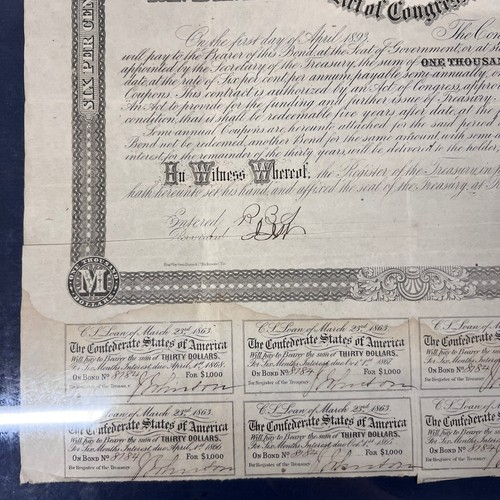 Act of Congress
SIX PER CEN
On the first day of April 1893, The Con
will pay to the Bearer of this Bond, at the Seat of Government, or at s
appointed by the Secretary of the Treasury, the sum of ONE THOUSAN
date, at the rate of Six per cent per annum, payable semi-annually,
Coupons. This contract is authorized by an Act of Congress, approv
An Act to provide for the funding and further issue of Treasury
condition, that it shall be redeemable five years after date, at the p
Semi annual Coupons are hereunto attached for the said period
Bond not be redeemed, another Bond for the same amount, with some
interest for the remainder of the thirty years, will be delivered to the holder,
In Witness Whereof, the Register of the Treasury, en p
hath hereunto set his hand, and affixed the seal of the Treasury, at
Entered
ONE THOUSAND
M
DOLLARS
C.S. Loan of March 23rd 1863.
The Confederate States of America
Will pay to Bearer the sum of THIRTY DOLLARS.
For Six Months Interest due April 1st 1868.
ON BOND No 8784 FOR $1,000
For Register of the Treasury
C.S. Loan of March 23rd 1863.
The Confederate States of America
Will pay to Bearer the sum of THIRTY DOLLARS.
For Six Months Interest due Oct 1st 1867
ON BOND No 8784 FOR $1,000
For Register of the Treasury.
C.S. Loan
The Confed
Will pay to Bea
For Six Months
ON BOND No 8784
For Register of the
C.S. Loan of March 23rd 1863.
The Confederate States of America
Will pay to Bearer the sum of THIRTY DOLLARS.
For Six Months Interest due April 1st 1866
ON BOND No 8784 FOR $1,000
For Register of the Treasury.
C.S. Loan of March 23rd 1863.
The Confederate States of America
Will pay to Bearer the sum of THIRTY DOLLARS.
For Six Months Interest due Oct 1st 1865
ON BOND No 8784 FOR $1,000
For Register of the Treasury.
C.S. Loan
The Confed
Will pay to Bear
For Six Months
ON BOND No 8784
For Register of the